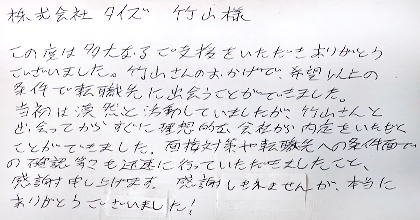 株式会社 タイズ 竹山様
この度は多大なるご支援をいただきありがとう
ございました。竹山さんのおかげで、希望以上の
条件で転職先に出会うことができました。
当初は漠然と活動していましたが、竹山さんと
出会ってからすぐに理想的な会社から内定をいただく
ことができました。面接対策や転職先への条件面で
の確認等々も迅速に行っていただきましたこと、
感謝申し上げます。感謝しきれませんが、本当に
ありがとうございました!